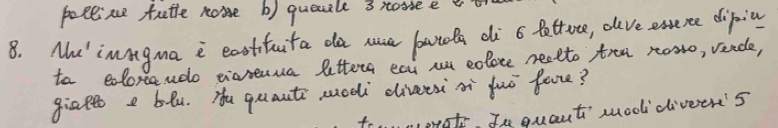 palline tutte rosse b) quelle 3 rosse e
8. Un'insegna è costituita da una parola di 6 lettere, deve essere dipin
ta colorando ciascuna lettera con un colore scelto tra rosso, verde,
giallo e blu. In quanti modi diversi si può fare?
In quanti modi diversi 5